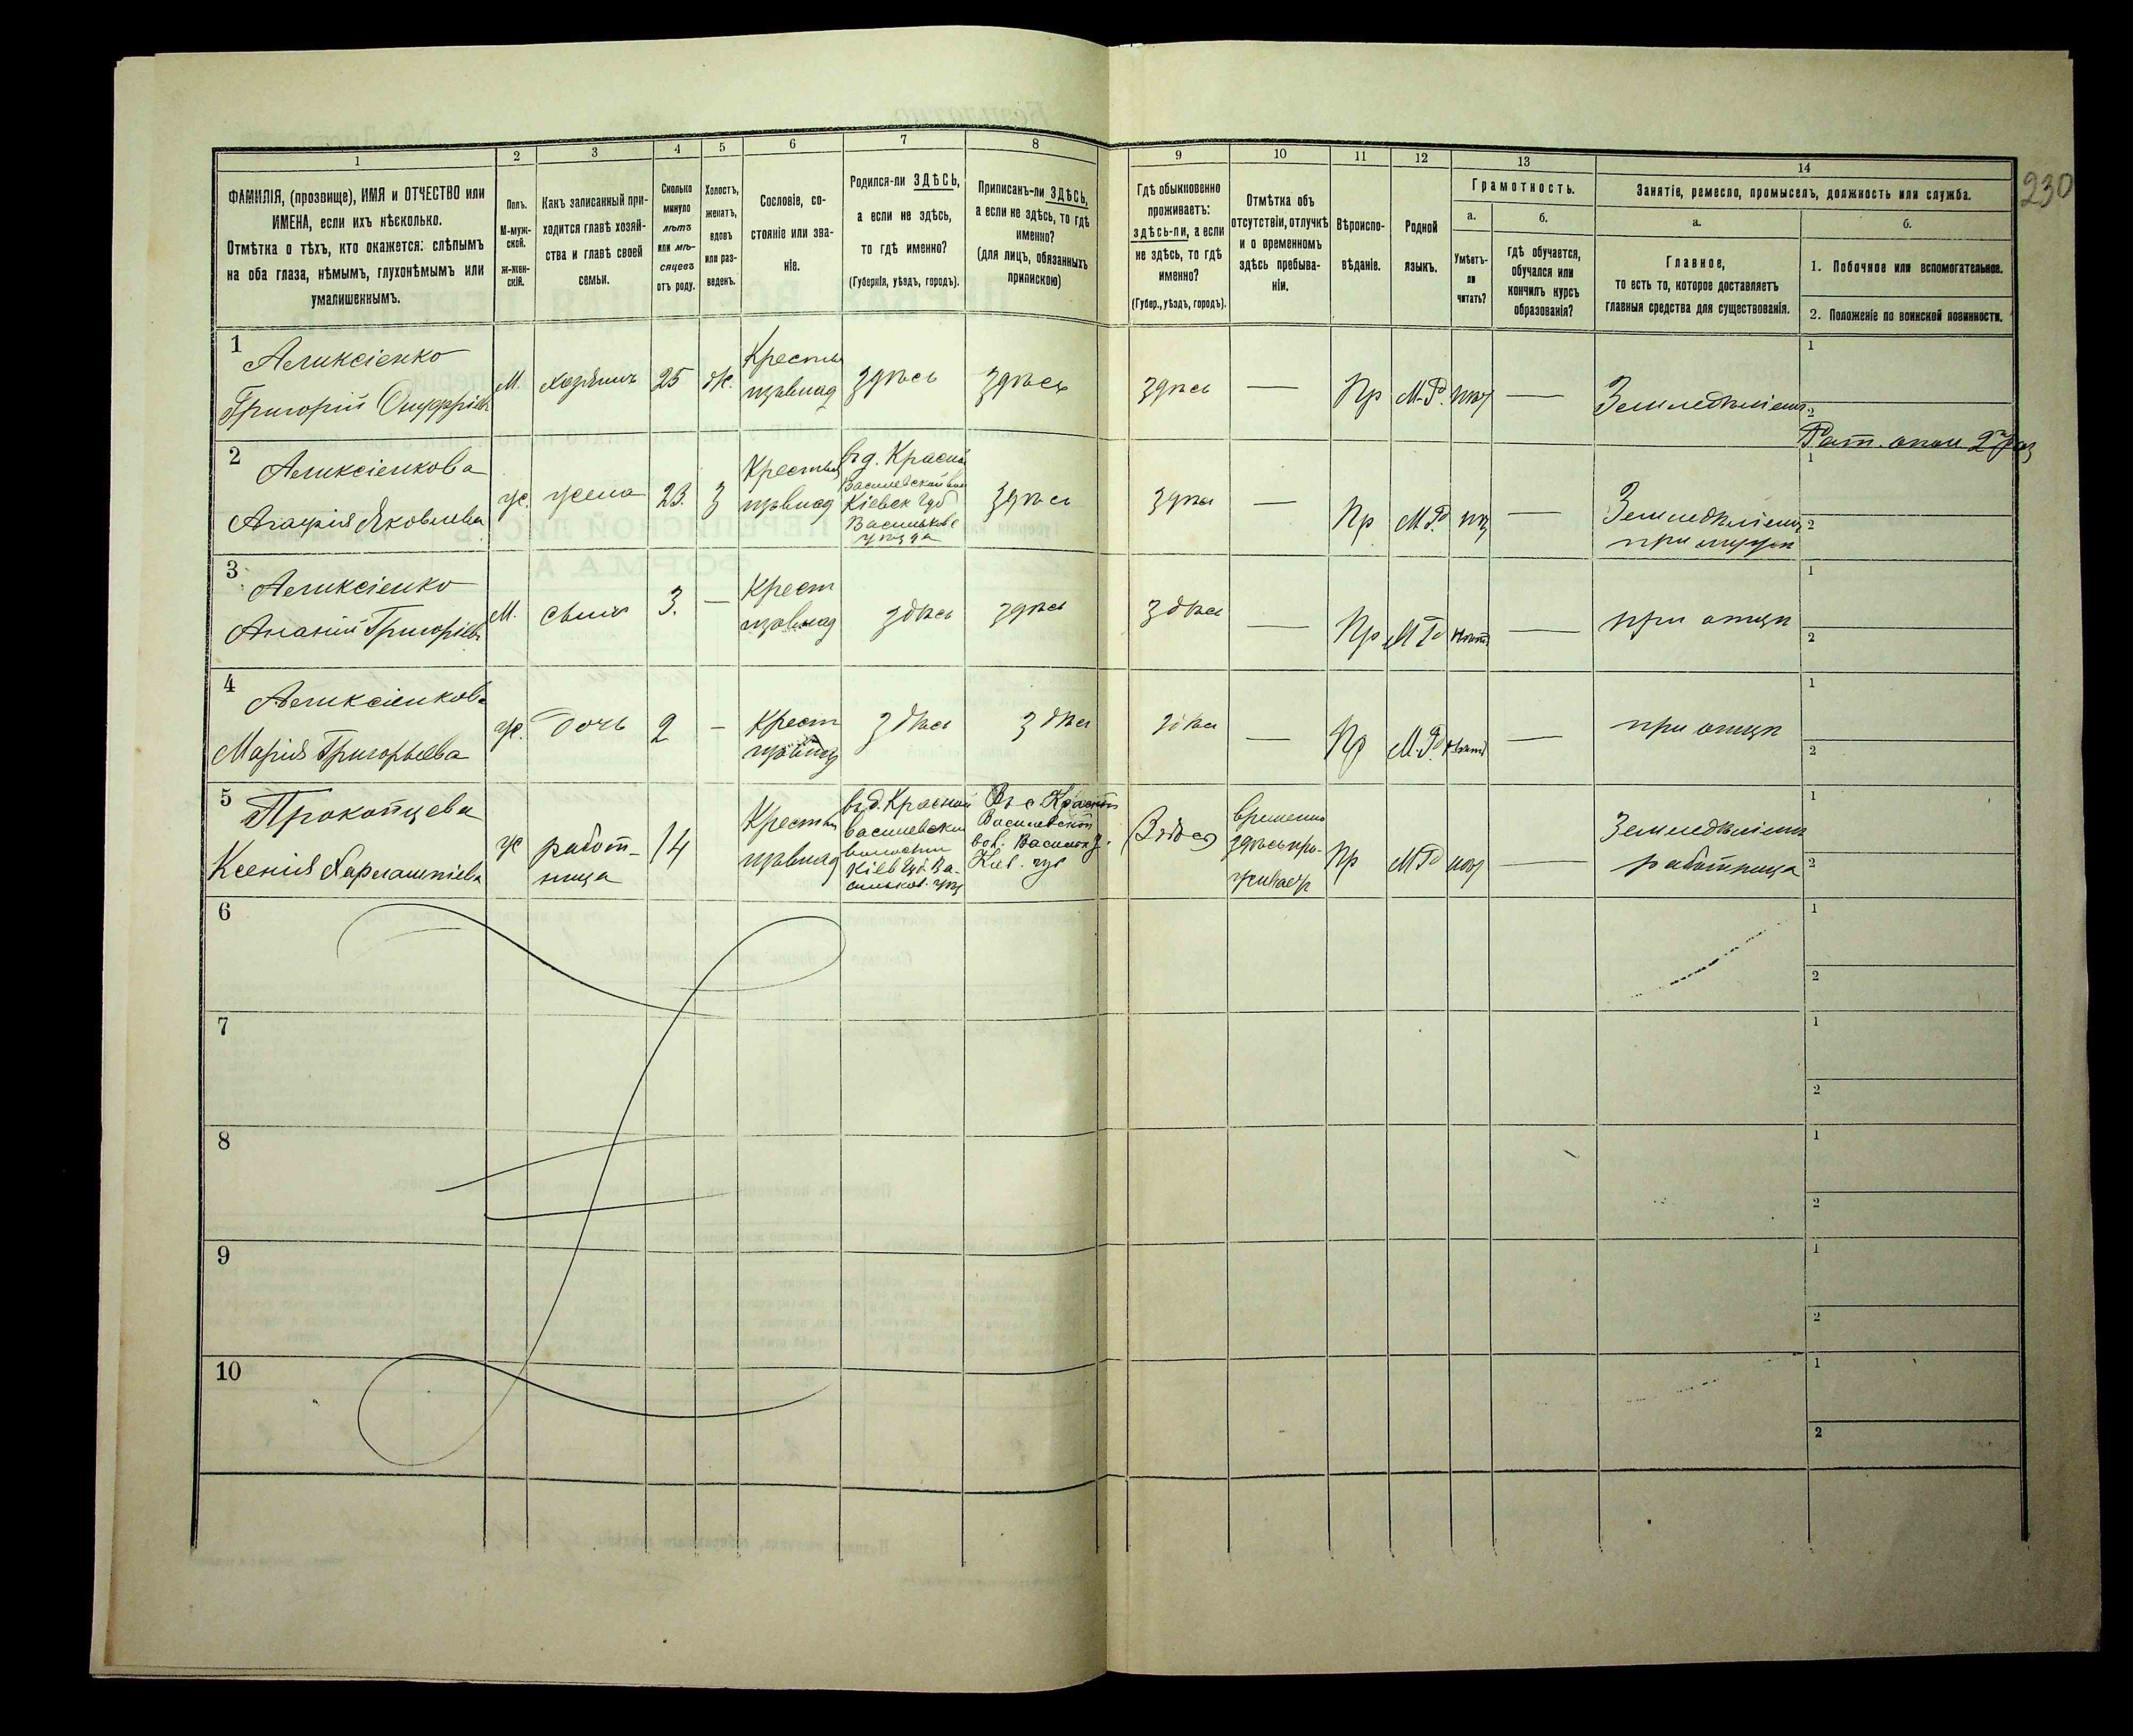 230
1
2
3
4
5
6
7
8
9
10
11
12
13
14
ФАМИЛІЯ, (прозвище), ИМЯ и ОТЧЕСТВО или
ИМЕНА, если ихъ нѣсколько.
Отмѣтка о тѣхъ, кто окажется: слѣпымъ
на оба глаза, нѣмымъ, глухонѣмымъ или
умалишеннымъ.
Полъ.
М-муж-
ской.
Ж-жен-
скій.
Какъ записанный при-
ходится главѣ хозяй-
ства и главѣ своей
семьи.
Сколько
минуло
лѣтъ
или мѣ-
сяцевъ
отъ роду.
Холостъ,
женатъ,
вдовъ
или раз-
веденъ.
Сословіе, со-
стояніе или зва-
ніе.
Родился-ли ЗДѢСЬ,
а если не здѣсь,
то гдѣ именно?
(Губернія, уѣздъ, городъ).
Приписанъ-ли ЗДѢСЬ,
а если не здѣсь, то гдѣ
именно?
(для лицъ, обязанныхъ
припискою)
Гдѣ обыкновенно
проживаетъ:
здѣсь-ли, а если
не здѣсь, то гдѣ
именно?
(Губер., уѣздъ, городъ).
Отмѣтка объ
отсутствіи, отлучкѣ
и о временномъ
здѣсь пребыва-
ніи.
Вѣроиспо-
вѣданіе.
Родной
языкъ.
Грамотность.
а.
б.
Умѣетъ-
ли
читать?
Гдѣ обучается,
обучался или
кончилъ курсъ
образованія?
Занятіе, ремесло, промыселъ, должность или служба.
а.
б.
Главное,
то есть то, которое доставляетъ
главныя средства для существованія.
1. Побочное или вспомогательное.
2. Положеніе по воинской повинности.
1
Аликсіенко
Григорій Онуфріевъ
М.
хозяинъ
25
ж.
Крестья
изъ влад
здѣсь
здѣсь
здѣсь
—
Пр
М-Р.
—
Земледѣліемъ
1
2
Рат. опол 2
2
Аликсіенкова
Агафія Яковлева
ж.
жена
23.
З
Крестья
изъ влад
въ д. Красной
Василевской вол
Кіевск губ
Васильков
уѣзда
здѣсь
здѣсь
—
Пр
М.Р.
Земледѣліемъ
при мужѣ
1
2
3
Аликсіенко
Ананій Григоріевъ
М.
сынъ
3.
—
Крест
изъ влад
здѣсь
здѣсь
здѣсь
—
Пр
М Р
нѣтъ
—
при отцѣ
1
2
4
Аликсіенкова
Марія Григорьева
ж.
дочь
2
—
Крест
изъ влад
здѣсь
здѣсь
здѣсь
—
Пр
М.Р.
нѣтъ
—
при отцѣ
1
2
5
Прокопцева
Ксенія Харлампіева
ж
работ-
ница
14
Крестья
изъ влад
въ д. Красной
Василевской
волости
Кіев Губ. Ва-
сильков. уѣз
Въ с Красной
Василевской
вол. Васильк у.
Кіев. губ
Здѣсь
временно
здѣсь про-
живаетъ
Пр
М Р
—
Земледѣліемъ
работница
1
2
6
1
2
7
1
2
8
1
2
9
1
2
10
1
2